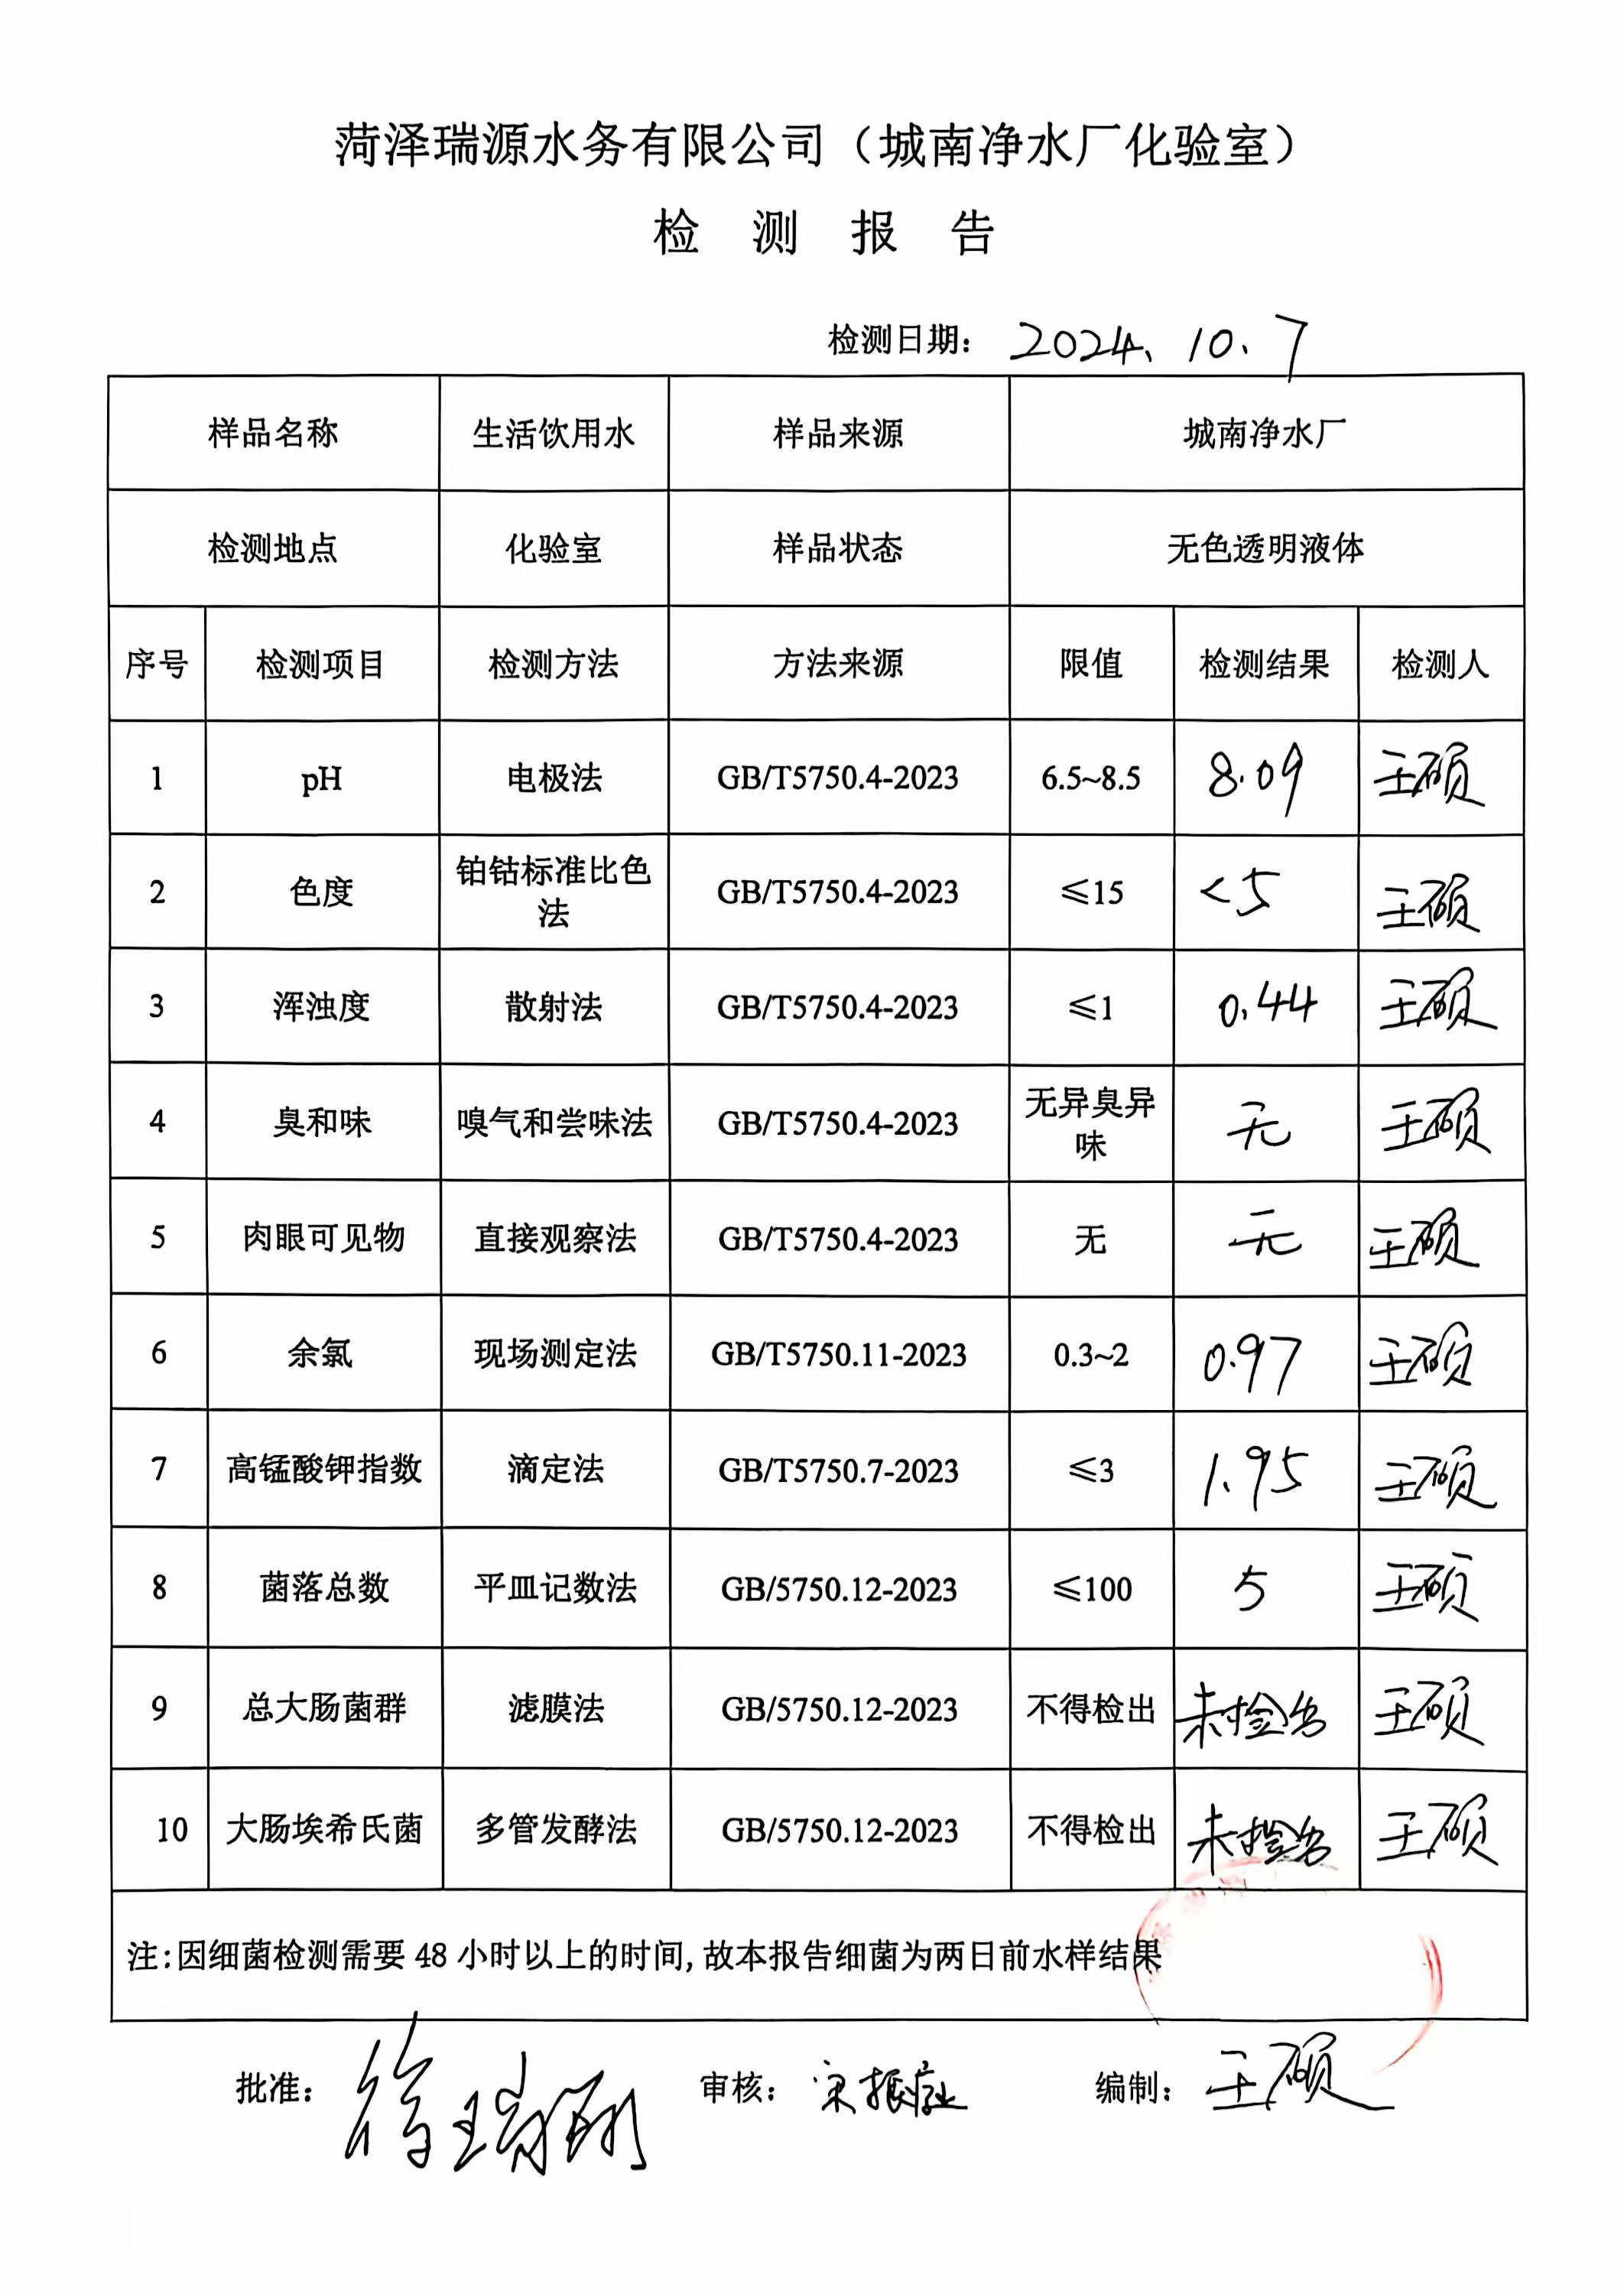 菏泽瑞源水务有限公司（城南净水厂化验室）
检 测 报 告
检测日期： 2024.10.7
样品名称 生活饮用水 样品来源 城南净水厂
检测地点 化验室 样品状态 无色透明液体
序号 检测项目 检测方法 方法来源 限值 检测结果 检测人
1 pH 电极法 GB/T5750.4-2023 6.5~8.5 8.09 王硕
2 色度 铂钴标准比色法 GB/T5750.4-2023 ≤15 <5 王硕
3 浑浊度 散射法 GB/T5750.4-2023 ≤1 0.44 王硕
4 臭和味 嗅气和尝味法 GB/T5750.4-2023 无异臭异味 无 王硕
5 肉眼可见物 直接观察法 GB/T5750.4-2023 无 无 王硕
6 余氯 现场测定法 GB/T5750.11-2023 0.3~2 0.97 王硕
7 高锰酸钾指数 滴定法 GB/T5750.7-2023 ≤3 1.95 王硕
8 菌落总数 平皿记数法 GB/5750.12-2023 ≤100 5 王硕
9 总大肠菌群 滤膜法 GB/5750.12-2023 不得检出 未检出 王硕
10 大肠埃希氏菌 多管发酵法 GB/5750.12-2023 不得检出 未检出 王硕
注:因细菌检测需要 48 小时以上的时间,故本报告细菌为两日前水样结果
批准： 徐瑞翔 审核： 宋振 编制： 王硕